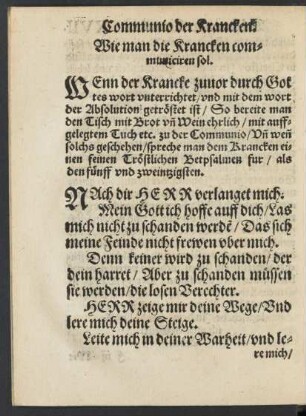 Communio der Krancken.
Wie man die Krancken com-
municiren sol.
WEnn der Krancke zuuor durch Got
tes wort vnterrichtet/vnd mit dem wort
der Absolution getröstet ist/ So bereite man
den Tisch mit Brot vñ Wein ehrlich/ mit auff-
gelegtem Tuch etc. zu der Communio/ Vñ weñ
solchs geschehen/spreche man dem Krancken ei-
nen feinen Tröstlichen Betpsalmen fur/ als
den fünff vnd zweintzigsten.
NAch dir HERR verlanget mich.
Mein Gott ich hoffe auff dich/ Las
mich nicht zu schanden werdē/ Das sich
meine Feinde nicht frewen vber mich.
Denn keiner wird zu schanden/ der
dein harret/ Aber zu schanden müssen
sie werden/ die losen Verechter.
HERR zeige mir deine Wege/ Vnd
lere mich deine Steige.
Leite mich in deiner Warheit/ vnd le-
re mich/